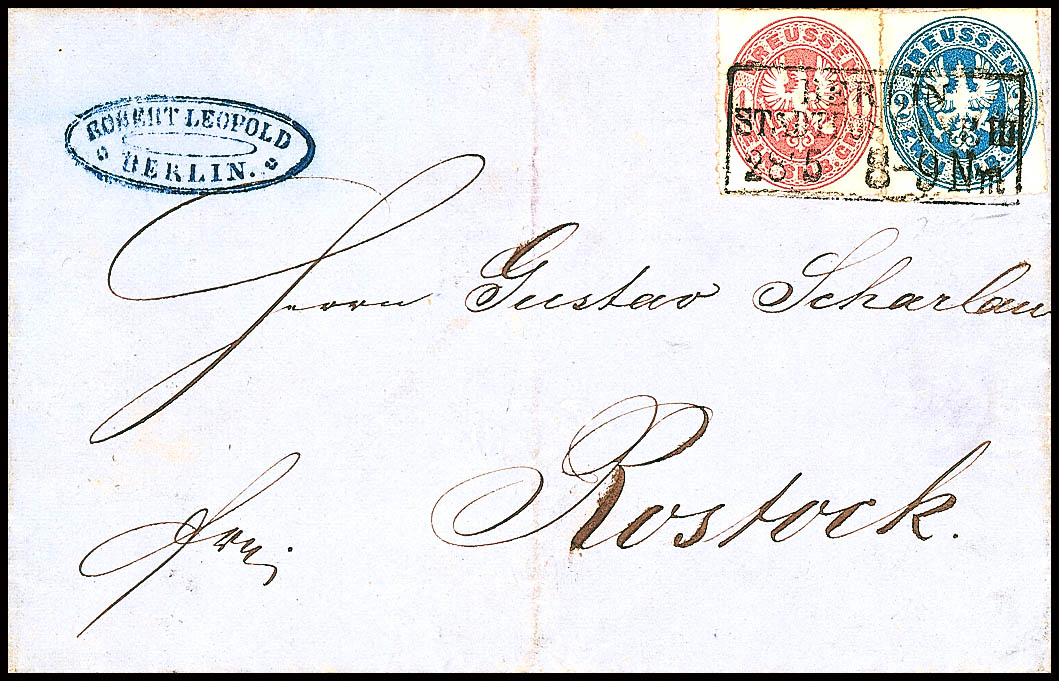 ROBERT LEOPOLD
BERLIN.
PREUSSEN
PREUSSEN
BERLIN
III
28 5 8-9 Nm
Herrn Gustav Scharlau
Rostock.